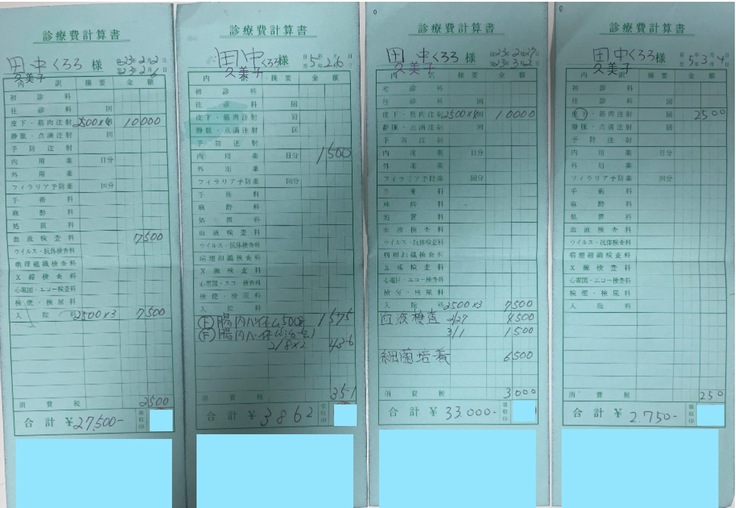 診療費計算書
田中くろろ様
久美子
内訳 摘要 金額
初診料
往診料 回
皮下・筋肉注射 2500×4回 10000
静脈・点滴注射 回
予防注射
内用薬 日分
外用薬
フィラリア予防薬 回分
手術料
麻酔料
処置料
血液検査料 7500
ウイルス・抗体検査料
病理組織検査料
X線検査料
心電図・エコー検査料
検便・検尿料
入院料 2500×3 7500
消費税 2500
合計 ¥27,500-
診療費計算書
田中くろろ様
久美子
5年2月6日
内訳 摘要 金額
初診料
往診料 回
皮下・筋肉注射 回
静脈・点滴注射 回
予防注射
内用薬 日分 1500
外用薬
フィラリア予防薬 回分
手術料
麻酔料
処置料
血液検査料
ウイルス・抗体検査料
病理組織検査料
X線検査料
心電図・エコー検査料
検便・検尿料
入院料
消費税 351
合計 ¥3,862
診療費計算書
田中くろろ様
久美子
内訳 摘要 金額
初診料
往診料 回
皮下・筋肉注射 2500×4回 10000
静脈・点滴注射 回
予防注射
内用薬 日分
外用薬
フィラリア予防薬 回分
手術料
麻酔料
処置料
血液検査料
ウイルス・抗体検査料
病理組織検査料
X線検査料
心電図・エコー検査料
検便・検尿料
入院料 2500×3 7500
血液検査 2/27 4500
3/1 1500
細菌培養 6500
消費税 3,000
合計 ¥33,000-
診療費計算書
田中くろろ様
久美子
5年3月4日
内訳 摘要 金額
初診料
往診料 回
皮下・筋肉注射 2500
静脈・点滴注射 回
予防注射
内用薬 日分
外用薬
フィラリア予防薬 回分
手術料
麻酔料
処置料
血液検査料
ウイルス・抗体検査料
病理組織検査料
X線検査料
心電図・エコー検査料
検便・検尿料
入院料
消費税 250
合計 ¥2,750-